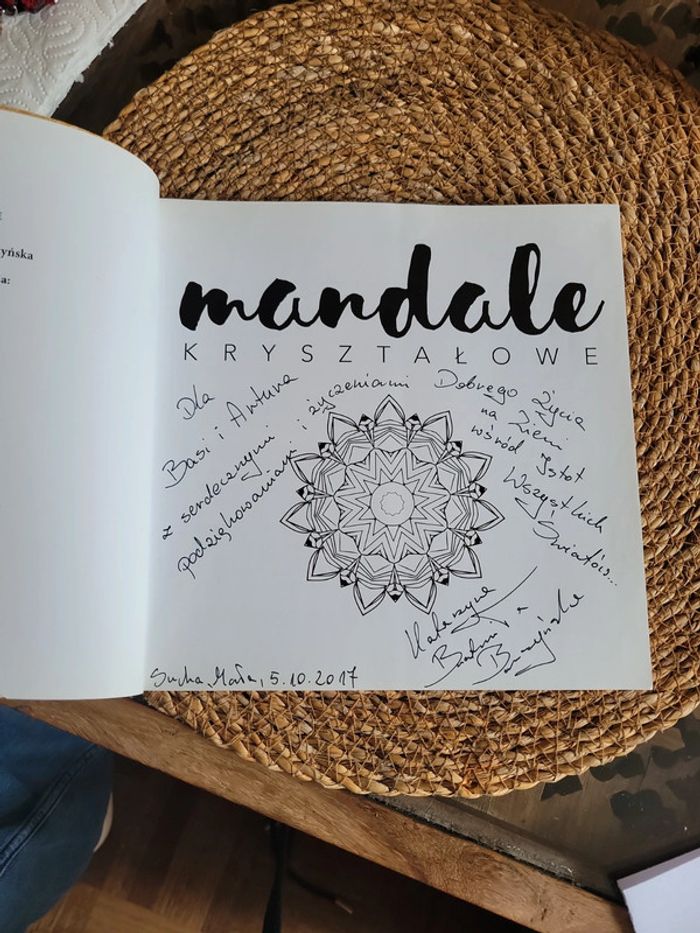 yńska
a:
mandale
KRYSZTAŁOWE
Dla
Basi i Antura
z serdecznymi
podziękowaniami i życzeniami
Dobrego Życia
na Ziemi
wśród Istot
Wszystkich
Światów...
Katarzyna
Sucha Mała, 5.10.2017